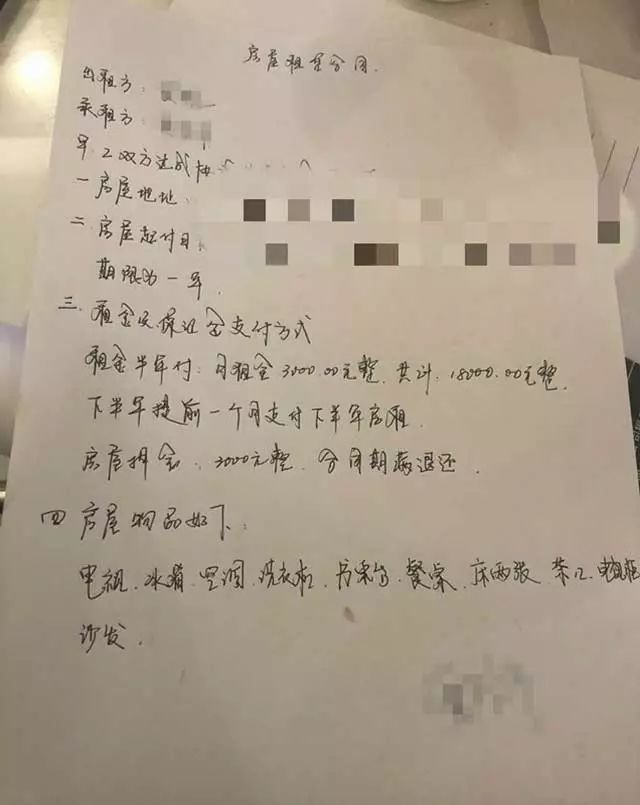 房屋租赁合同.
出租方：
承租方：
甲.乙双方达成
一 房屋地址：
二. 房屋起付日：
期限为一年.
三. 租金及保证金支付方式
租金半年付：月租金3000.00元整. 共计：18000.00元整.
下半年提前一个月支付下半年房租.
房屋押金：3000元整. 合同期满退还.
四 房屋物品如下：
电视.冰箱.空调.洗衣机.餐桌.床两张.茶几.电视柜
沙发.